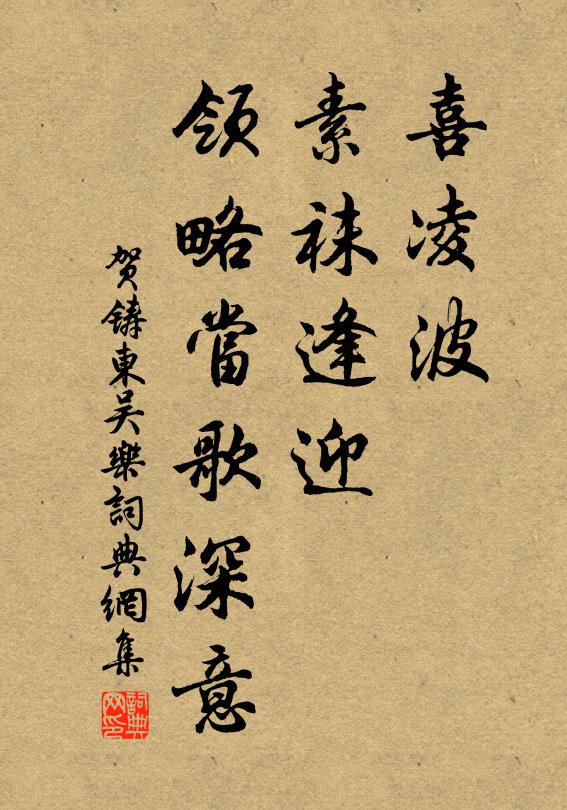 喜凌波
素袜逢迎
領略當歌深意
贺鑄東吴樂詞典網集
詞典网印